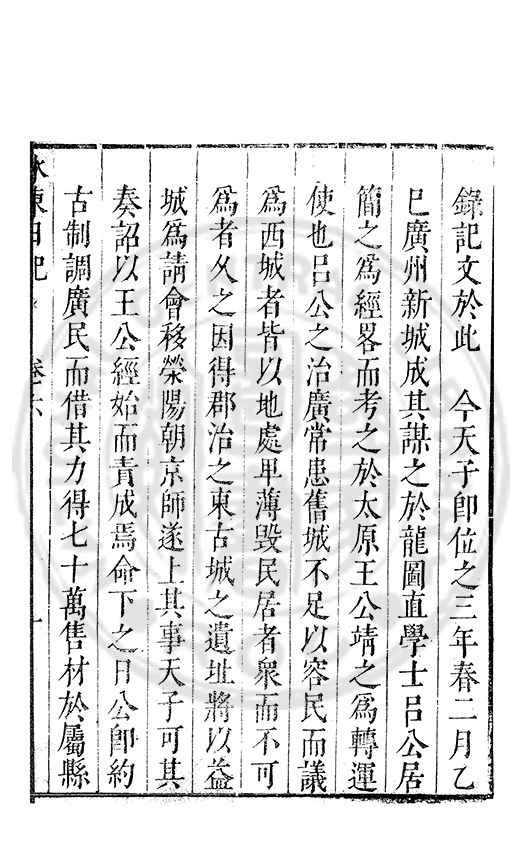 錄記文於此　今天子卽位之三年春二月乙
巳廣州新城成其謀之於龍圖直學士呂公居
簡之爲經畧而考之於太原王公靖之爲轉運
使也呂公之治廣常患舊城不足以容民而議
爲西城者皆以地處卑薄毀民居者衆而不可
爲者久之因得郡治之東古城之遺址將以益
城爲請會移滎陽朝京師遂上其事天子可其
奏詔以王公經始而責成焉命下之日公卽約
古制調廣民而借其力得七十萬售材於屬縣
水東日記 卷六